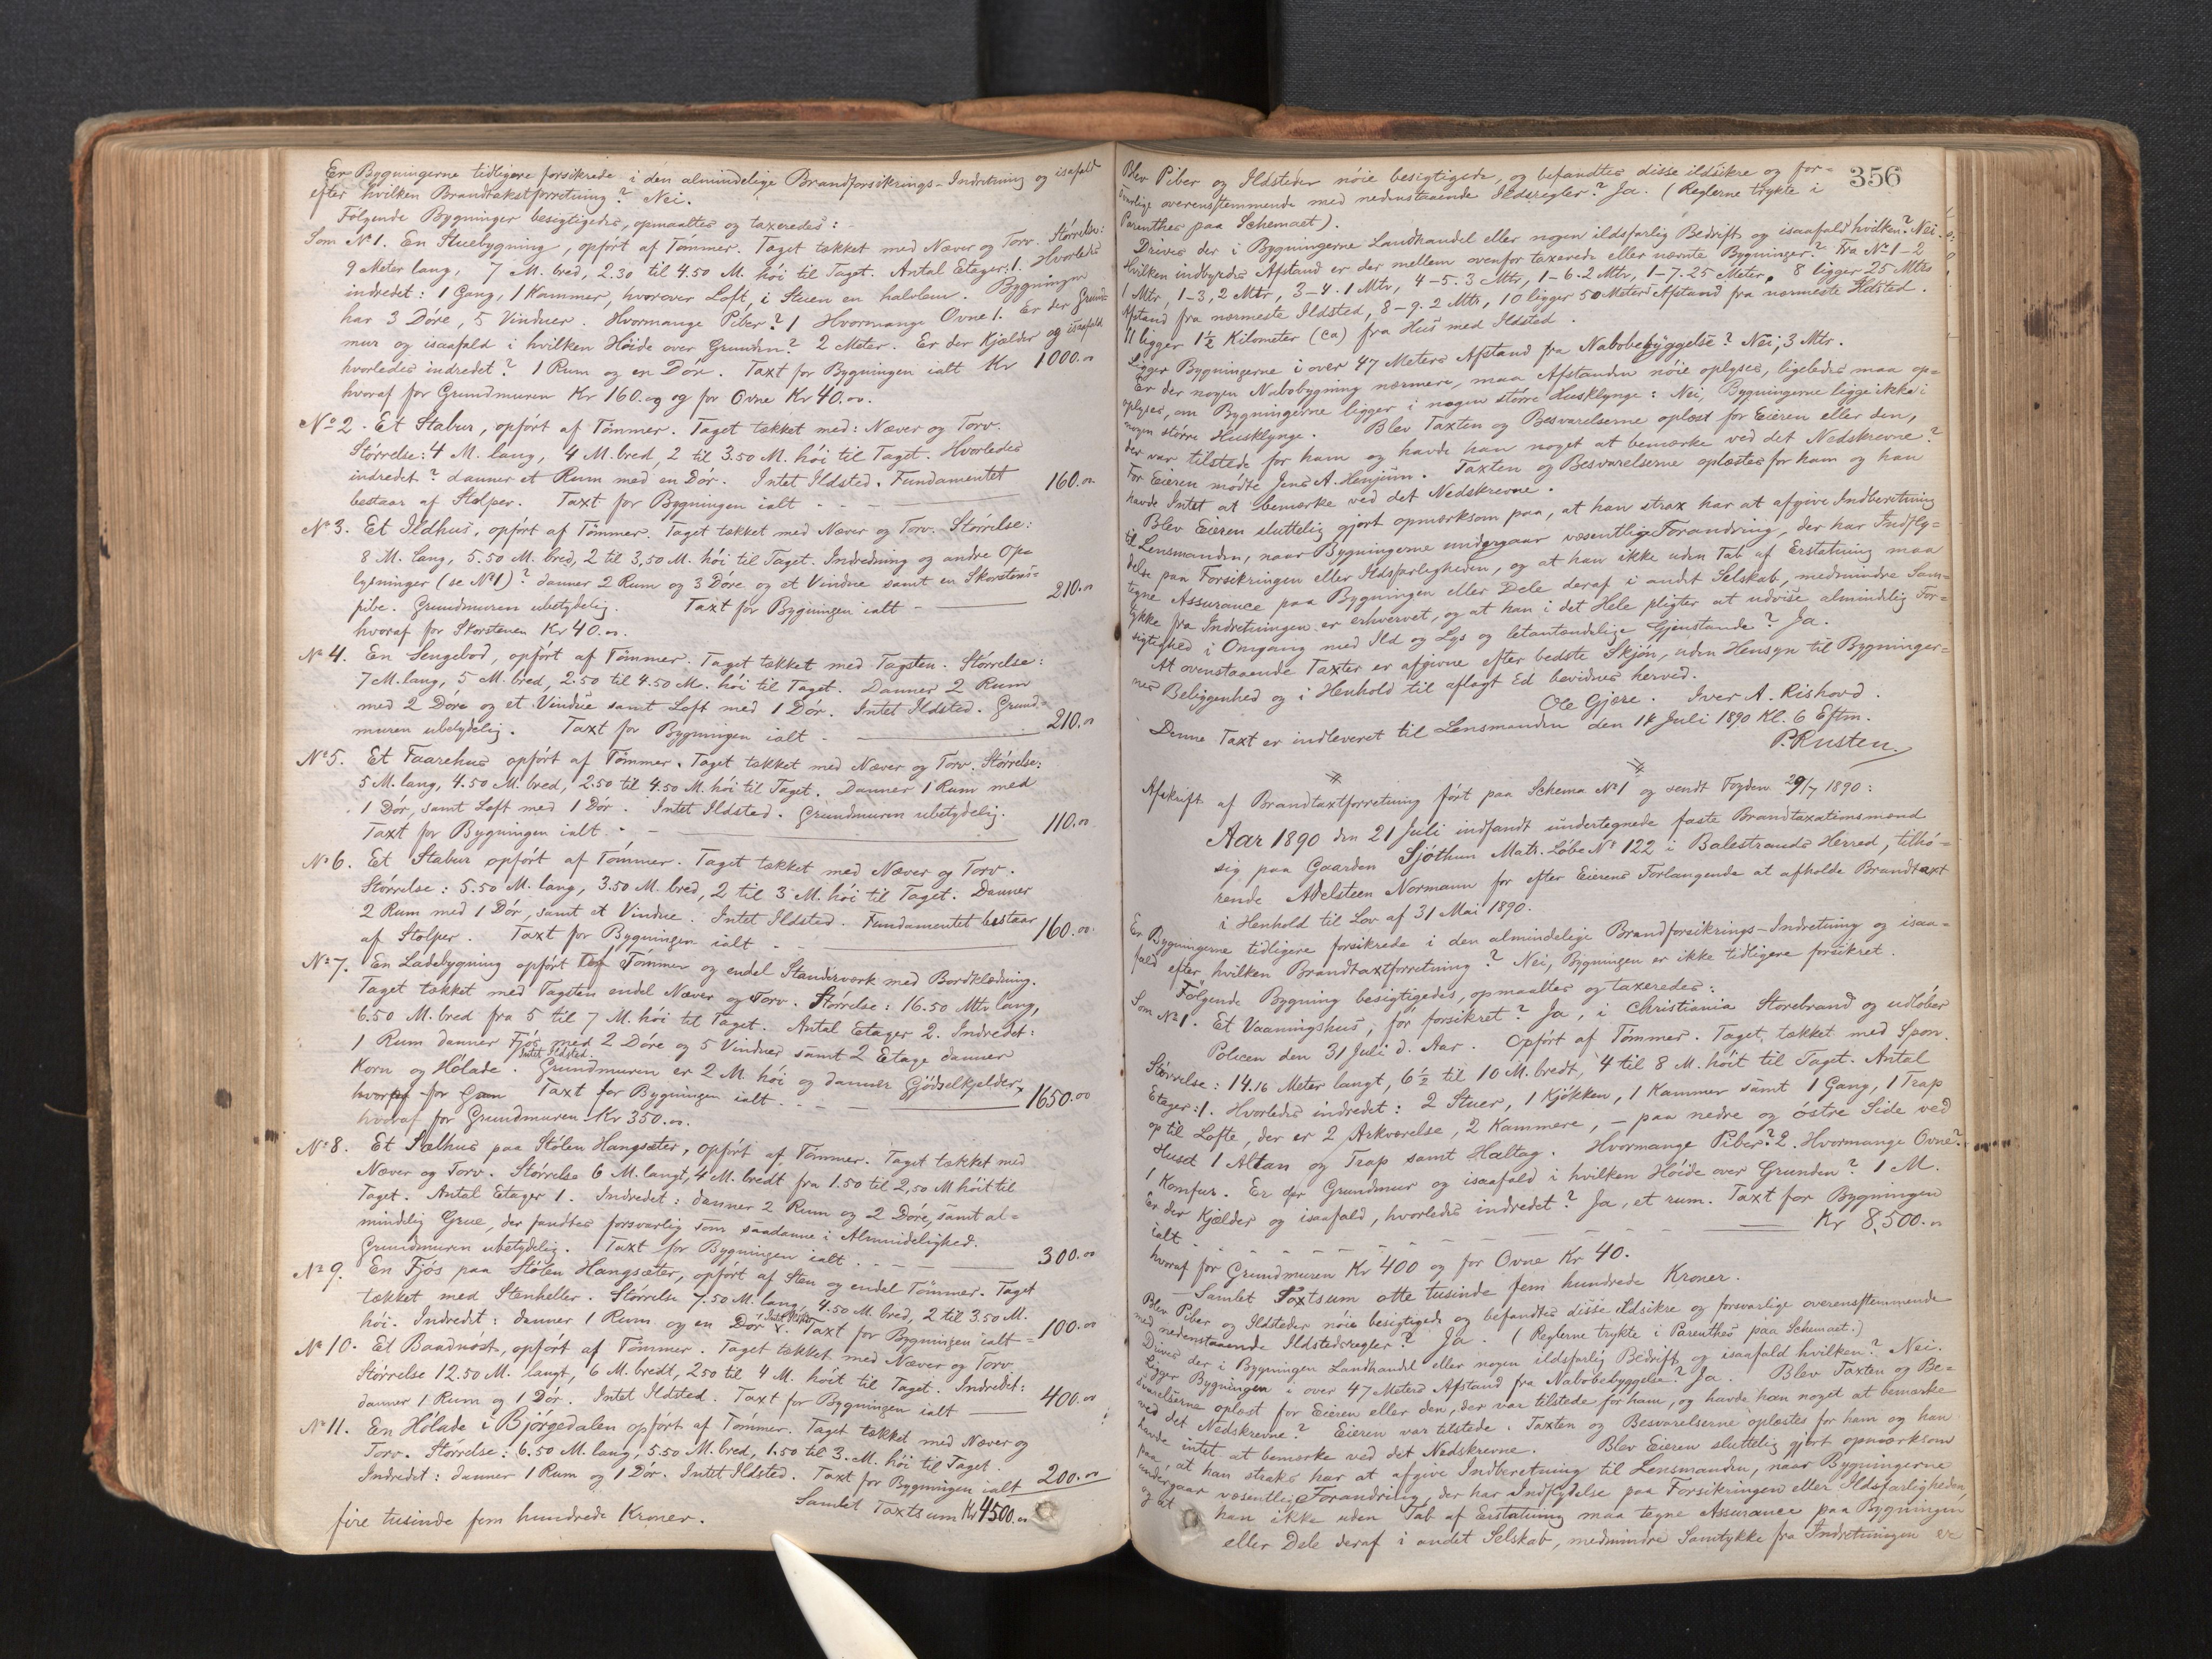 Er Bygningerne tidligere forsikrede i den almindelige Brandforsikrings-Indretning og isafald
efter hvilken Brandtakstforretning? Nei.
Følgende Bygninger besigtigedes, opmaaltes og taxeredes:
Som No 1. En Stuebygning, opført af Tømmer. Taget tækket med Næver og Torv. Størrelse:
9 Meter lang, 7 M. bred, 2.30 til 4.50 M. høi til Taget. Antal Etager: 1. Hvorledes
indredet: 1 Gang, 1 Kammer, hvorover Loft, i Stuen en halvlem. Bygningen
har 3 Døre, 5 Vinduer. Hvormange Piber? 1 Hvormange Ovne 1. Er der Grund-
mur og isaafald i hvilken Høide over Grunden? 2 Meter. Er der Kjælder og isaafald
hvorledes indredet? 1 Rum og en Dør. Taxt for Bygningen ialt Kr 1000.00
hvoraf for Grundmuren Kr 160.00 og for Ovne Kr 40.00.
No 2. Et Stabur, opført af Tømmer. Taget tækket med: Næver og Torv.
Størrelse: 4 M. lang, 4 M. bred, 2 til 3.50 M. høi til Taget. Hvorledes
indredet? danner et Rum med en Dør. Intet Ildsted. Fundamentet
bestaar af Stolper. Taxt for Bygningen ialt - - 160.00
No 3. Et Ildhus, opført af Tømmer. Taget tækket med Næver og Torv. Størrelse:
8 M. lang, 5.50 M. bred, 2 til 3,50 M. høi til Taget. Indredning og andre Op=
lysninger (se No 1)? danner 2 Rum og 3 Døre og et Vindue samt en Skorstens=
pibe. Grundmuren ubetydelig. Taxt for Bygningen ialt - 210.00
hvoraf for Skorstenen Kr 40.00.
No 4. En Sengebod, opført af Tømmer. Taget tækket med Tagsten. Størrelse:
7 M. lang, 5 M. bred, 2.50 til 4.50 M. høi til Taget. Danner 2 Rum
med 2 Døre og et Vindue samt Loft med 1 Dør. Intet Ildsted. Grund=
muren ubetydelig. Taxt for Bygningen ialt - 210.00
No 5. Et Faarehus opført af Tømmer. Taget tækket med Næver og Torv. Størrelse:
5 M. lang, 4.50 M. bred, 2.50 til 4.50 M. høi til Taget. Danner 1 Rum med
1 Dør, samt Loft med 1 Dør. Intet Ildsted. Grundmuren ubetydelig.
Taxt for Bygningen ialt - - 110.00
No 6. Et Stabur opført af Tømmer. Taget tækket med Næver og Torv.
Størrelse: 5.50 M. lang, 3.50 M. bred, 2 til 3 M. høi til Taget. Danner
2 Rum med 1 Dør, samt et Vindue. Intet Ildsted. Fundamentet bestaar
af Stolper. Taxt for Bygningen ialt - - 160.00
No 7. En Ladebygning opført af Tømmer og endel Standerværk med Bordklædning.
Taget tækket med Tagsten endel Næver og Torv. Størrelse: 16.50 Mtr lang,
6.50 M. bred fra 5 til 7 M. høi til Taget. Antal Etager 2. Indredet:
1 Rum danner Fjøs med 2 Døre og 5 Vinduer samt 2 Etage danner
Korn og Hølade. Intet Ildsted. Grundmuren er 2 M. høi og danner Gjødselkjelder,
hvoraf for Taxt for Bygningen ialt - - 1650.00
hvoraf for Grundmuren Kr 350.00.
No 8. Et Sælhus paa Stølen Hangsæter, opført af Tømmer. Taget tækket med
Næver og Torv. Størrelse 6 M. langt, 4 M. bredt fra 1.50 til 2,50 M høit til
Taget. Antal Etager 1. Indredet: danner 2 Rum og 2 Døre, samt al=
mindelig Grue, der fandtes forsvarlig som saadanne i Almindelighed.
Grundmuren ubetydelig. Taxt for Bygningen ialt - - 300.00
No 9. En Fjøs paa Stølen Hangsæter, opført af Sten og endel Tømmer. Taget
tækket med Stenheller. Størrelse 7.50 M. lang, 4.50 M. bred, 2 til 3.50 M.
høi. Indredet: danner 1 Rum og en Dør. Intet Ildsted. Taxt for Bygningen ialt - 100.00
No 10. Et Baadnøst, opført af Tømmer. Taget tækket med Næver og Torv
Størrelse 12.50 M. langt, 6 M. bredt, 2.50 til 4 M. høit til Taget. Indredet:
danner 1 Rum og 1 Dør. Intet Ildsted. Taxt for Bygningen ialt 400.00
No 11. En Hølade i Bjørgedalen opført af Tømmer. Taget tækket med Næver og
Torv. Størrelse: 6.50 M. lang, 5.50 M. bred, 1.50 til 3. M. høi til Taget.
Indredet: danner 1 Rum og 1 Dør. Intet Ildsted. Taxt for Bygningen ialt 200.00
Samlet Taxtsum Kr 4500.00
fire tusinde fem hundrede Kroner.
356
Blev Piber og Ildsteder nøie besigtigede, og befandtes disse ildsikre og for=
svarlige overensstemmende med nedenstaaende Ildsregler? Ja. (Reglerne trykte i
Parenthes paa Schemaet).
Drives der i Bygningerne Landhandel eller nogen ildsfarlig Bedrift og isaafald hvilken? Nei.
Hvilken indbyrdes Afstand er der mellem ovenfor taxerede eller nævnte Bygninger? Fra No 1-2
1 Mtr, 1-3, 2 Mtr, 3-4. 1 Mtr, 4-5. 3 Mtr, 1-6. 2 Mtr, 1-7. 25 Meter, 8 ligger 25 Mtrs
Afstand fra nærmeste Ildsted, 8-9. 2 Mtr, 10 ligger 50 Meters Afstand fra nærmeste Ildsted.
11 ligger 1½ Kilometer (ca) fra Hus med Ildsted.
Ligger Bygningerne i over 47 Meters Afstand fra Nabobebyggelse? Nei; 3 Mtr.
Er der nogen Nabobygning nærmere, maa Afstanden nøie oplyses, ligeledes maa op=
lyses, om Bygningerne ligger i nogen større Husklynge: Nei, Bygningerne ligge ikke i
nogen større Husklynge. Blev Taxten og Besvarelserne oplæst for Eieren eller den,
der var tilstede for ham og havde han noget at bemærke ved det Nedskrevne?
For Eieren mødte Jens A. Henjum. Taxten og Besvarelserne oplæstes for ham og han
havde Intet at bemærke ved det Nedskrevne.
Blev Eieren sluttelig gjort opmærksom paa, at han strax har at afgive Indberetning
til Lensmanden, naar Bygningerne undergaar væsentlige Forandring, der har Indfly=
delse paa Forsikringen eller Ildsfarligheden, og at han ikke uden Tab af Erstatning maa
tegne Assurance paa Bygningen eller Dele deraf i andet Selskab, medmindre Sam=
tykke fra Indretningen er erhvervet, og at han i det Hele pligter at udvise almindelig For=
sigtighed i Omgang med Ild og Lys og letantændelige Gjenstande? Ja.
At ovenstaaende Taxter er afgivne efter bedste Skjøn, uden Hensyn til Bygninger=
nes Beliggenhed og i Henhold til aflagt Ed bevidnes herved.
Ole Gjære. Iver A. Rishovd.
Denne Taxt er indleveret til Lensmanden den 18 Juli 1890 Kl. 6 Eftm.
P. Rusten.
Afskrift af Brandtaxtforretning ført paa Schema No 1 og sendt Fogden 29/7 1890:
Aar 1890 den 21 Juli indfandt undertegnede faste Brandtaxationsmænd
sig paa Gaarden Sjøthun Matr. Løbe No 122 i Balestrands Herred, tilhø=
rende Adelsteen Normann for efter Eierens Forlangende at afholde Brandtaxt
i Henhold til Lov af 31 Mai 1890.
Er Bygningerne tidligere forsikrede i den almindelige Brandforsikrings-Indretning og isaa=
fald efter hvilken Brandtaxtforretning? Nei, Bygningen er ikke tidligere forsikret.
Følgende Bygning besigtigedes, opmaaltes og taxeredes:
Som No 1. Et Vaaningshus, før forsikret? Ja, i Christiania Storebrand og udløber
Policen den 31 Juli d. Aar. Opført af Tømmer. Taget tækket med Spon.
Størrelse: 14.16 Meter langt, 6½ til 10 M. bredt, 4 til 8 M. høit til Taget. Antal
Etager: 1. Hvorledes indredet: 2 Stuer, 1 Kjøkken, 1 Kammer samt 1 Gang, 1 Trap
op til Lofte, der er 2 Arkværelse, 2 Kammere, - paa nedre og østre Side ved
Huset 1 Altan og Trap samt Hæltag. Hvormange Piber? 2. Hvormange Ovne?
1 Komfur. Er der Grundmur og isaafald i hvilken Høide over Grunden? 1 M.
Er der Kjælder og isaafald, hvorledes indredet? Ja, et rum. Taxt for Bygningen
ialt - - - - - - - - Kr 8,500.00
hvoraf for Grundmuren Kr 400 og for Ovne Kr 40.
Samlet Taxtsum otte tusinde fem hundrede Kroner.
Blev Piber og Ildsteder nøie besigtiged, og befandtes disse ildsikre og forsvarlige overensstemmende
med nedenstaaende Ildstedsregler? Ja. (Reglerne trykte i Parenthes paa Schemaet.)
Drives der i Bygningen Landhandel eller nogen ildsfarlig Bedrift og isaafald hvilken? Nei.
Ligger Bygningen i over 47 Meters Afstand fra Nabobebyggelse? Ja. Blev Taxten og Be=
svarelserne oplæst for Eieren eller den, der var tilstede for ham, og havde han noget at bemærke
ved det Nedskrevne? Eieren var tilstede. Taxten og Besvarelserne oplæstes for ham og han
havde intet at bemærke ved det Nedskrevne. Blev Eieren sluttelig gjort opmærksom
paa, at han straks har at afgive Indberetning til Lensmanden, naar Bygningerne
undergaar væsentlig Forandring, der har Indflydelse paa Forsikringen eller Ildsfarligheden,
og at han ikke uden Tab af Erstatning maa tegne Assurance paa Bygningen
eller Dele deraf i andet Selskab, medmindre Samtykke fra Indretningen er